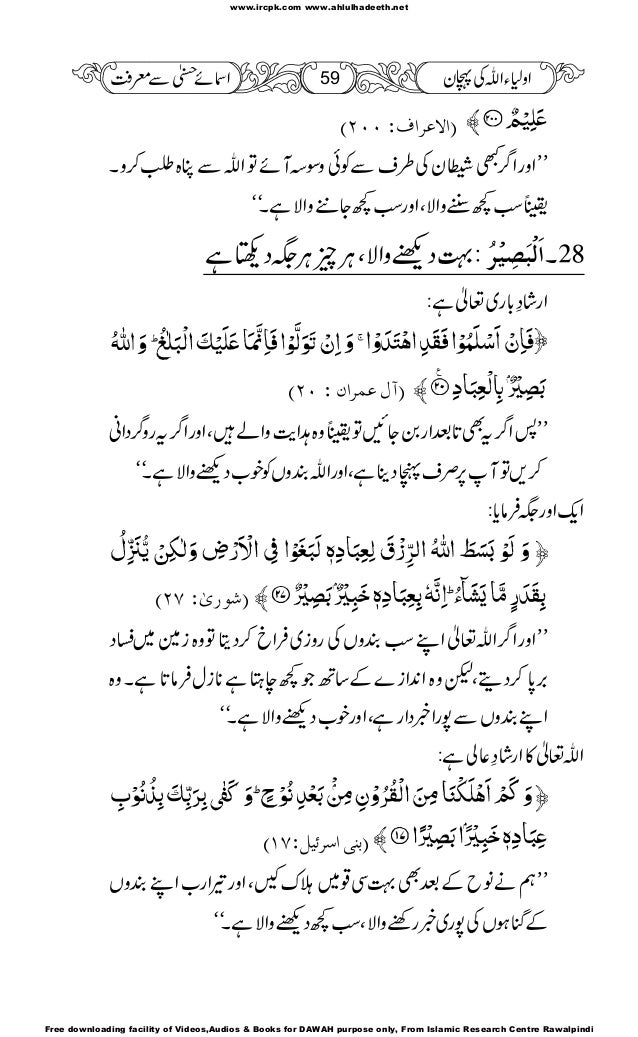 www.ircpk.com www.ahlulhadeeth.net
اولیاء اللہ کی پہچان 59 اسمائے حسنیٰ سے معرفت
عَلِيْمٌ ۝۲۰۰ ﴾ (الاعراف: ۲۰۰)
’’اور اگر کبھی شیطان کی طرف سے کوئی وسوسہ آئے تو اللہ سے پناہ طلب کرو۔
یقیناً سب کچھ سننے والا، اور سب کچھ جاننے والا ہے۔‘‘
28۔ اَلْبَصِيْرُ: بہت دیکھنے والا، ہر چیز ہر جگہ دیکھتا ہے
ارشادِ باری تعالیٰ ہے:
﴿فَاِنْ اَسْلَمُوْا فَقَدِ اهْتَدَوْا ۚ وَ اِنْ تَوَلَّوْا فَاِنَّمَا عَلَيْكَ الْبَلٰغُ ؕ وَ اللّٰهُ
بَصِيْرٌۢ بِالْعِبَادِ ۝۲۰ ﴾ (آل عمران : ۲۰)
’’پس اگر یہ بھی تابعدار بن جائیں تو یقیناً وہ ہدایت والے ہیں، اور اگر یہ روگردانی
کریں تو آپ پر صرف پہنچا دینا ہے، اور اللہ بندوں کو خوب دیکھنے والا ہے۔‘‘
ایک اور جگہ فرمایا:
﴿ وَ لَوْ بَسَطَ اللّٰهُ الرِّزْقَ لِعِبَادِهٖ لَبَغَوْا فِي الْاَرْضِ وَ لٰكِنْ يُّنَزِّلُ
بِقَدَرٍ مَّا يَشَآءُ ؕ اِنَّهٗ بِعِبَادِهٖ خَبِيْرٌۢ بَصِيْرٌ ۝۲۷ ﴾ (شوریٰ: ۲۷)
’’اور اگر اللہ تعالیٰ اپنے سب بندوں کی روزی فراخ کر دیتا تو وہ زمین میں فساد
برپا کر دیتے، لیکن وہ اندازے کے ساتھ جو کچھ چاہتا ہے نازل فرماتا ہے۔ وہ
اپنے بندوں سے پورا خبردار ہے، اور خوب دیکھنے والا ہے۔‘‘
اللہ تعالیٰ کا ارشادِ عالی ہے:
﴿ وَ كَمْ اَهْلَكْنَا مِنَ الْقُرُوْنِ مِنْۢ بَعْدِ نُوْحٍ ؕ وَ كَفٰى بِرَبِّكَ بِذُنُوْبِ
عِبَادِهٖ خَبِيْرًۢا بَصِيْرًا ۝۱۷ ﴾ (بنی اسرئیل: ۱۷)
’’ہم نے نوح کے بعد بھی بہت سی قومیں ہلاک کیں، اور تیرا رب اپنے بندوں
کے گناہوں کی پوری خبر رکھنے والا، سب کچھ دیکھنے والا ہے۔‘‘
Free downloading facility of Videos,Audios & Books for DAWAH purpose only, From Islamic Research Centre Rawalpindi